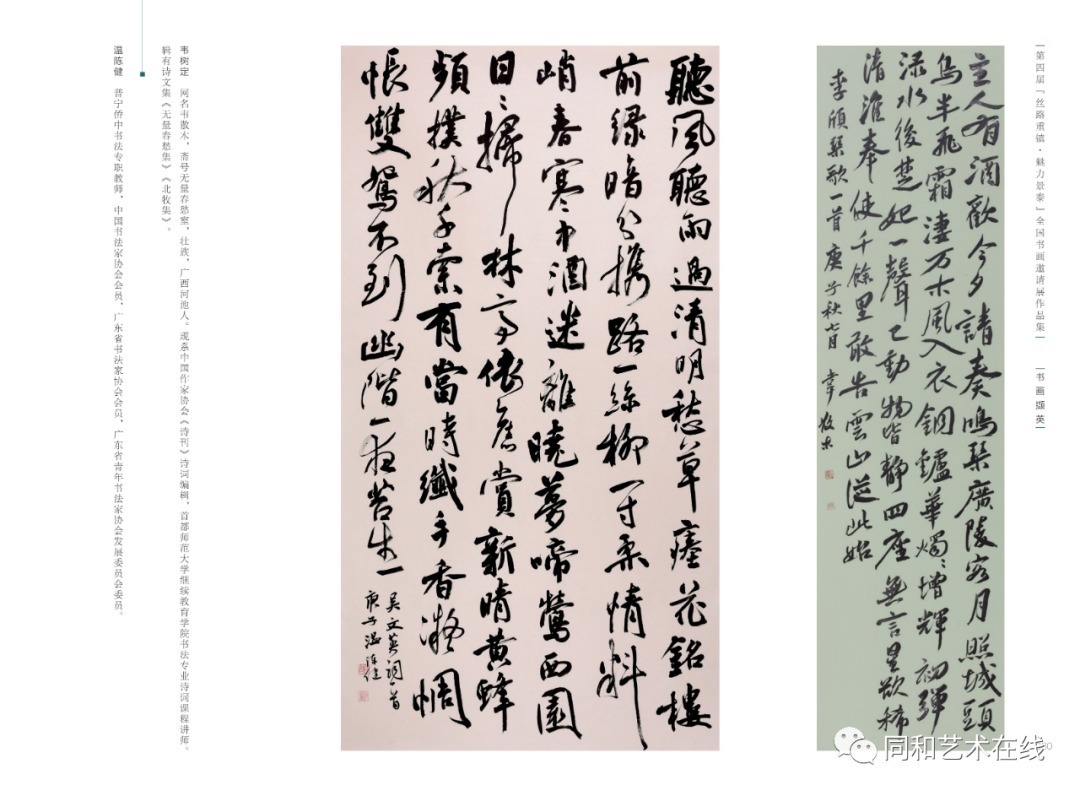 |第四届「丝路重镇·魅力景泰」全国书画邀请展作品集|
|书画撷英|
主人有酒歡今夕請奏鳴琴廣陵客月照城頭
烏半飛霜淒万木風入衣銅鑪華燭〻增輝初彈
渌水後楚妃一聲已動物皆靜四座無言星欲稀
清淮奉使千餘里敢告雲山從此始
李頎琴歌一首庚子秋七月韋散木
聽風聽雨過清明愁草瘞花銘樓
前緑暗分携路一絲柳一寸柔情料
峭春寒中酒迷離曉夢啼鶯西園
日〻掃林亭依舊賞新晴黄蜂
頻撲秋千索有當時纖手香凝惆
悵雙鴛不到幽階一夜苔生
吴文英詞一首
庚子温陈健
韦树定 网名韦散木，斋号无量春愁室，壮族，广西河池人。现系中国作家协会《诗刊》诗词编辑，首都师范大学继续教育学院书法专业诗词课程讲师。
辑有诗文集《无量春愁集》《北牧集》。
温陈健 普宁侨中书法专职教师，中国书法家协会会员，广东省书法家协会会员，广东省青年书法家协会发展委员会委员。
同和艺术在线